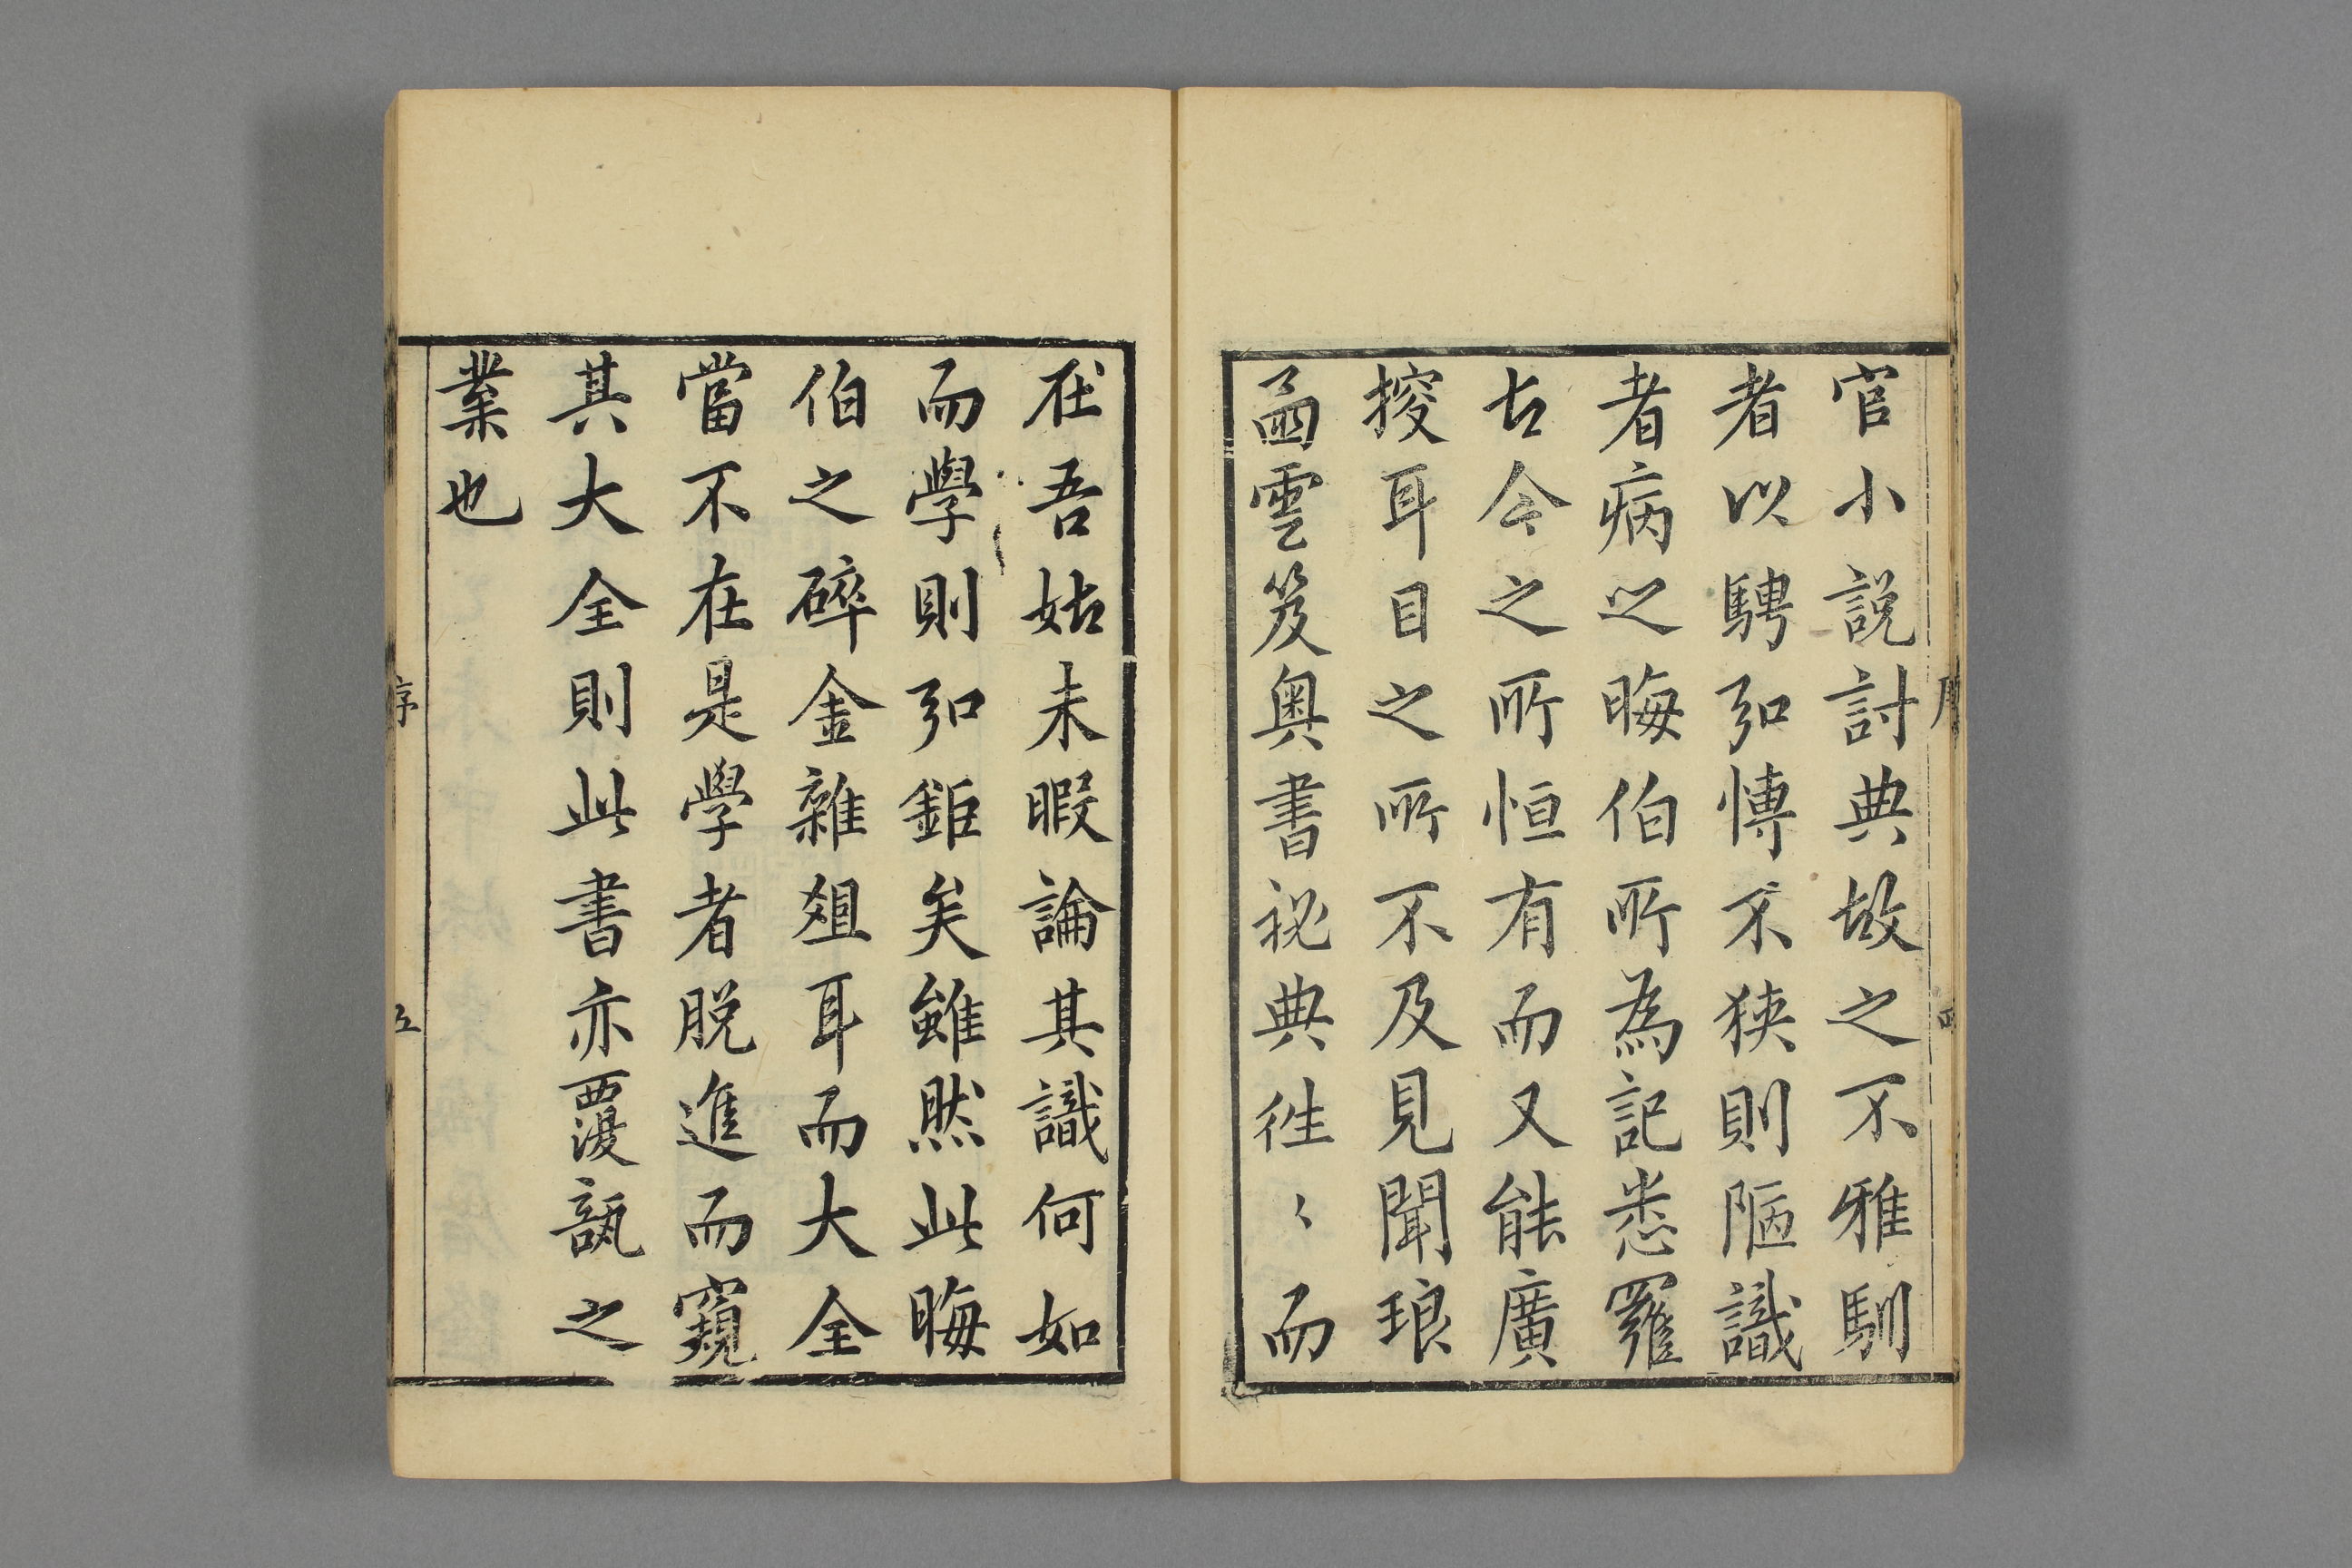 官小說討典故之不雅馴
者以騁弘慱不狭則陋識
者病之晦伯所為記悉羅
古今之所恒有而又能廣
搜耳目之所不及見聞琅
函雲笈奥書祕典徃〻而
在吾姑未暇論其識何如
而學則弘鉅矣雖然此晦
伯之碎金雜俎耳而大全
當不在是學者脱進而窺
其大全則此書亦覆瓿之
業也
序
五